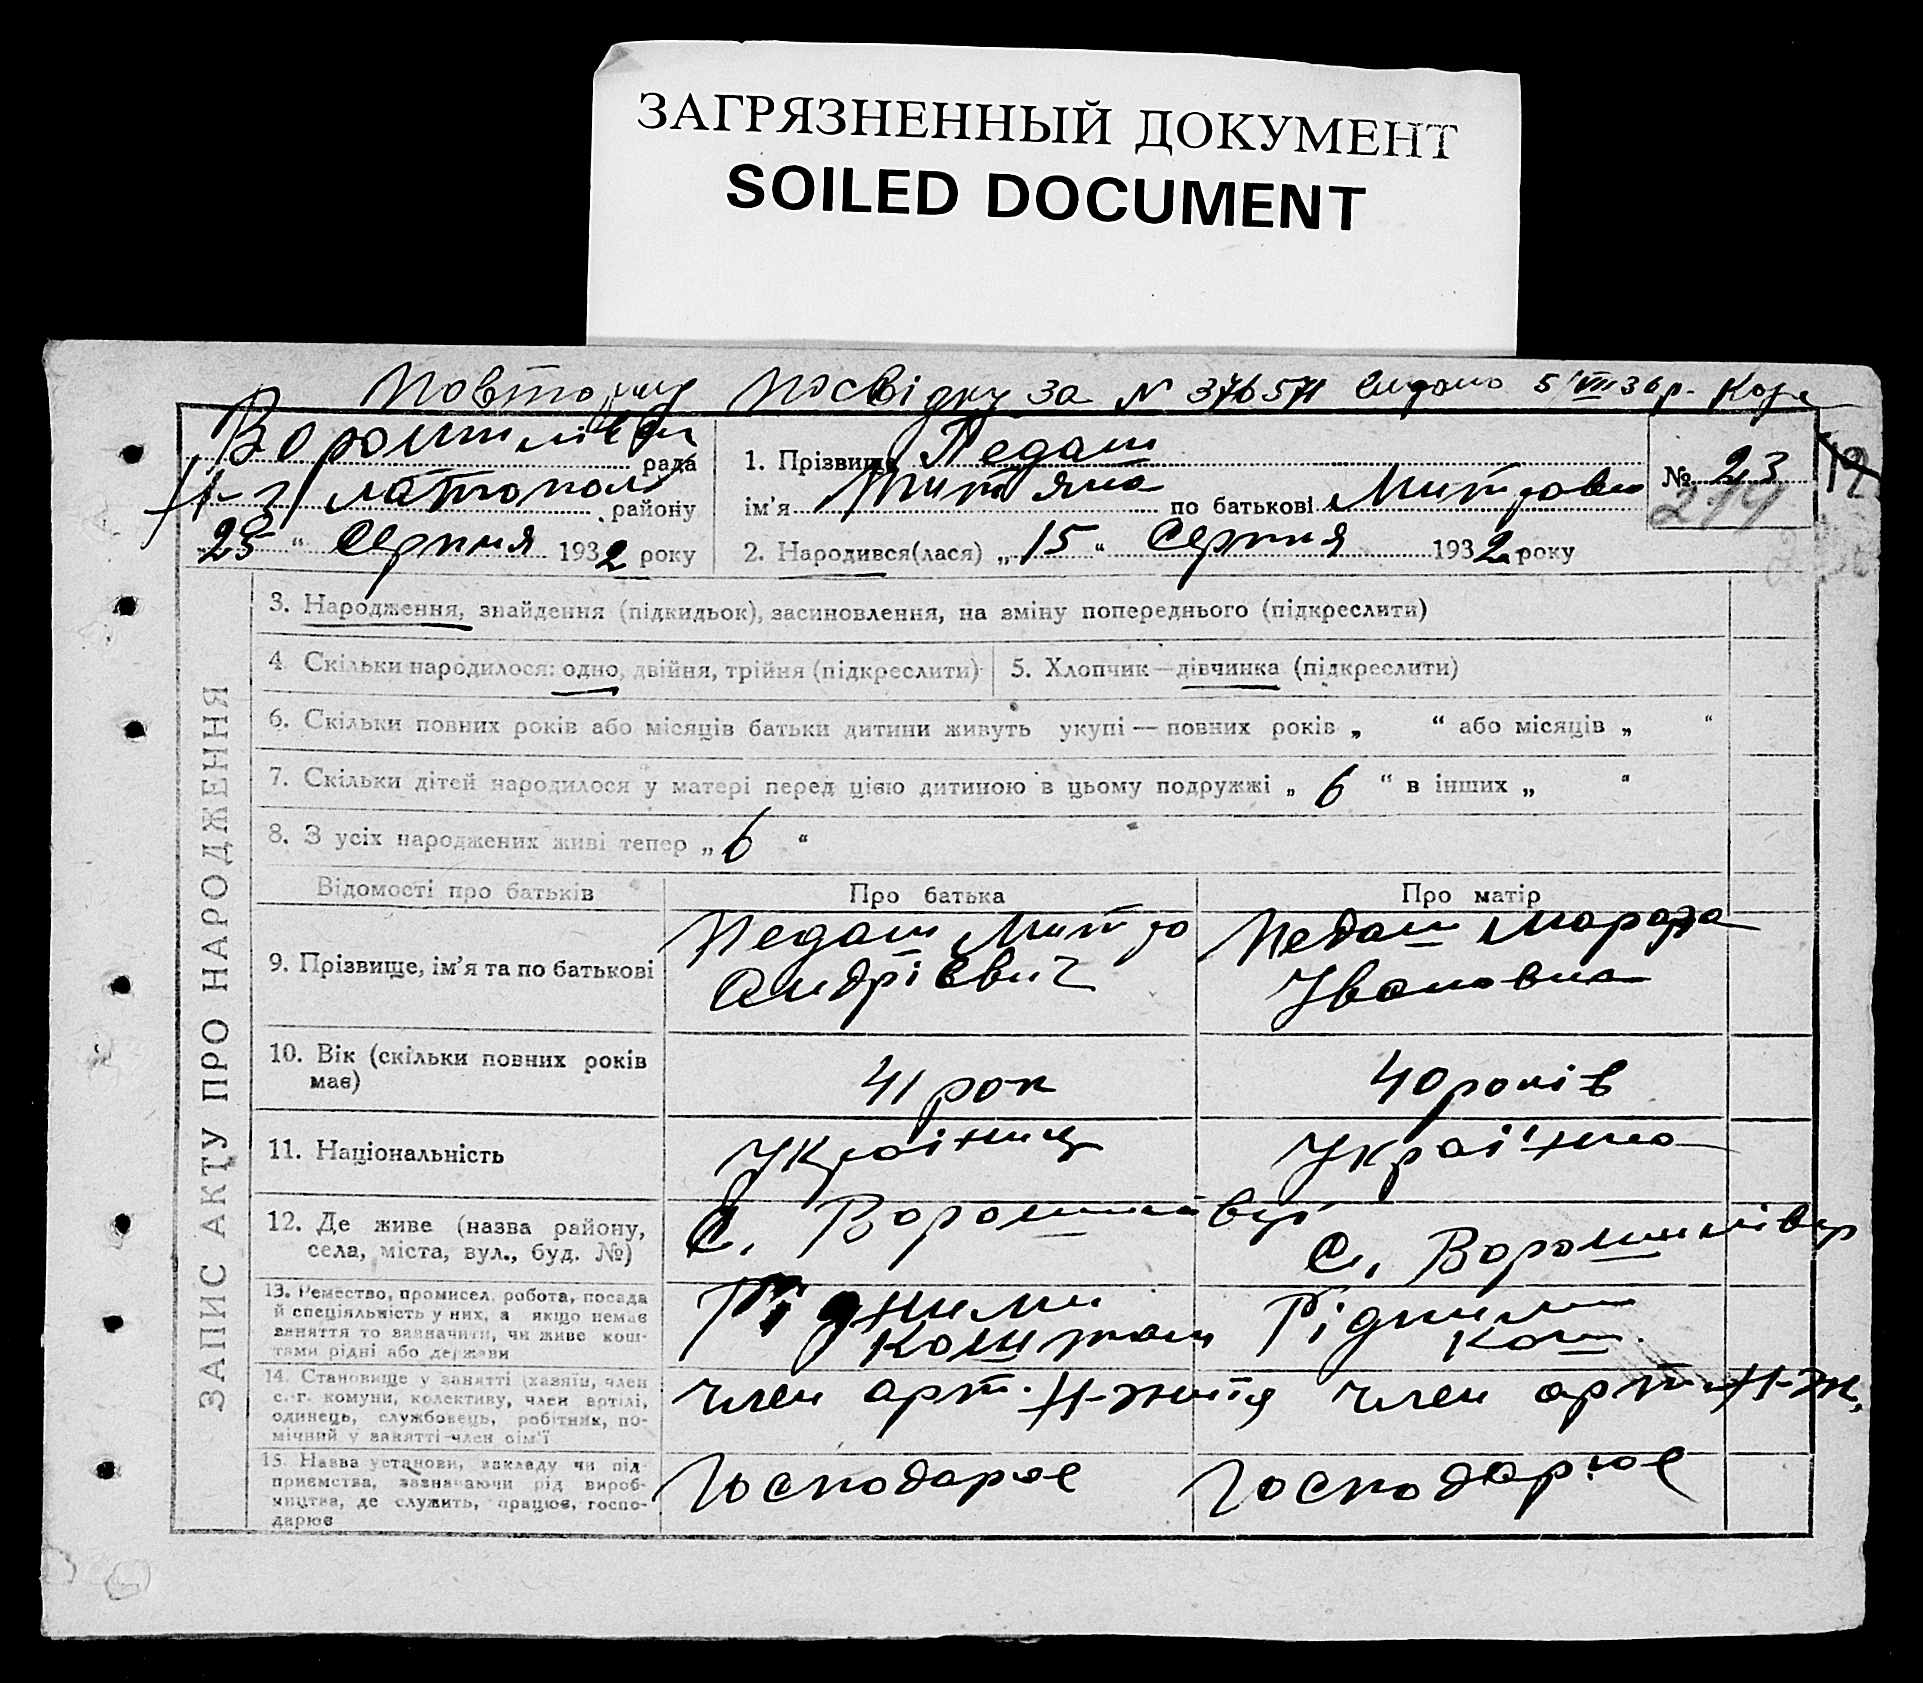 ЗАГРЯЗНЕННЫЙ ДОКУМЕНТ
SOILED DOCUMENT
Повторну посвідку за № 376571 видано 5/VIII 36 р.
Ворошилівськ рада
Н-Златополь району
„25“ Серпня 1932 року
1. Прізвище Педаш
ім'я Титяна по батькові Митровна
2. Народився(лася) „15“ Серпня 1932 року
№ 23
214
12
ЗАПИС АКТУ ПРО НАРОДЖЕННЯ
3. Народження, знайдення (підкидьок), засиновлення, на зміну попереднього (підкреслити)
4. Скільки народилося: одно, двійня, трійня (підкреслити)
5. Хлопчик — дівчинка (підкреслити)
6. Скільки повних років або місяців батьки дитини живуть укупі — повних років „ “ або місяців „ “
7. Скільки дітей народилося у матері перед цією дитиною в цьому подружжі „ 6 “ в інших „ “
8. З усіх народжених живі тепер „ 6 “
Відомості про батьків Про батька Про матір
9. Прізвище, ім'я та по батькові
Педаш Митро
Андрієвич
Педаш Марфа
Івановна
10. Вік (скільки повних років
має)
41 рок
40 років
11. Національність
Україниц
Українка
12. Де живе (назва району,
села, міста, вул., буд. №)
С. Ворошилівці
С. Ворошилівці
13. Ремество, промисел, робота, посада
й спеціяльність у них, а якщо немає
заняття то зазначити, чи живе кош-
тами рідні або держави
Рідними
коштам
Рідними
кош.
14. Становище у занятті (хазяїн, член
с.-г. комуни, колективу, член артілі,
одинець, службовець, робітник, по-
мічний у занятті член сім'ї
член арт. Н-життя
член арт. Н-ж.
15. Назва установи, закладу чи під-
приємства, зазначаючи рід вироб-
ництва, де служить, працює, госпо-
дарює
Господарює
Господарює